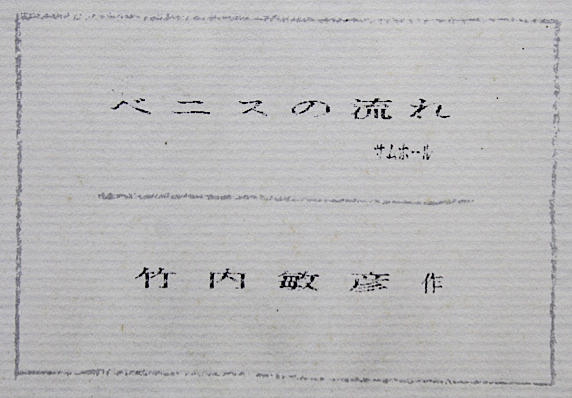 ベニスの流れ
サムホール
竹内敏彦 作